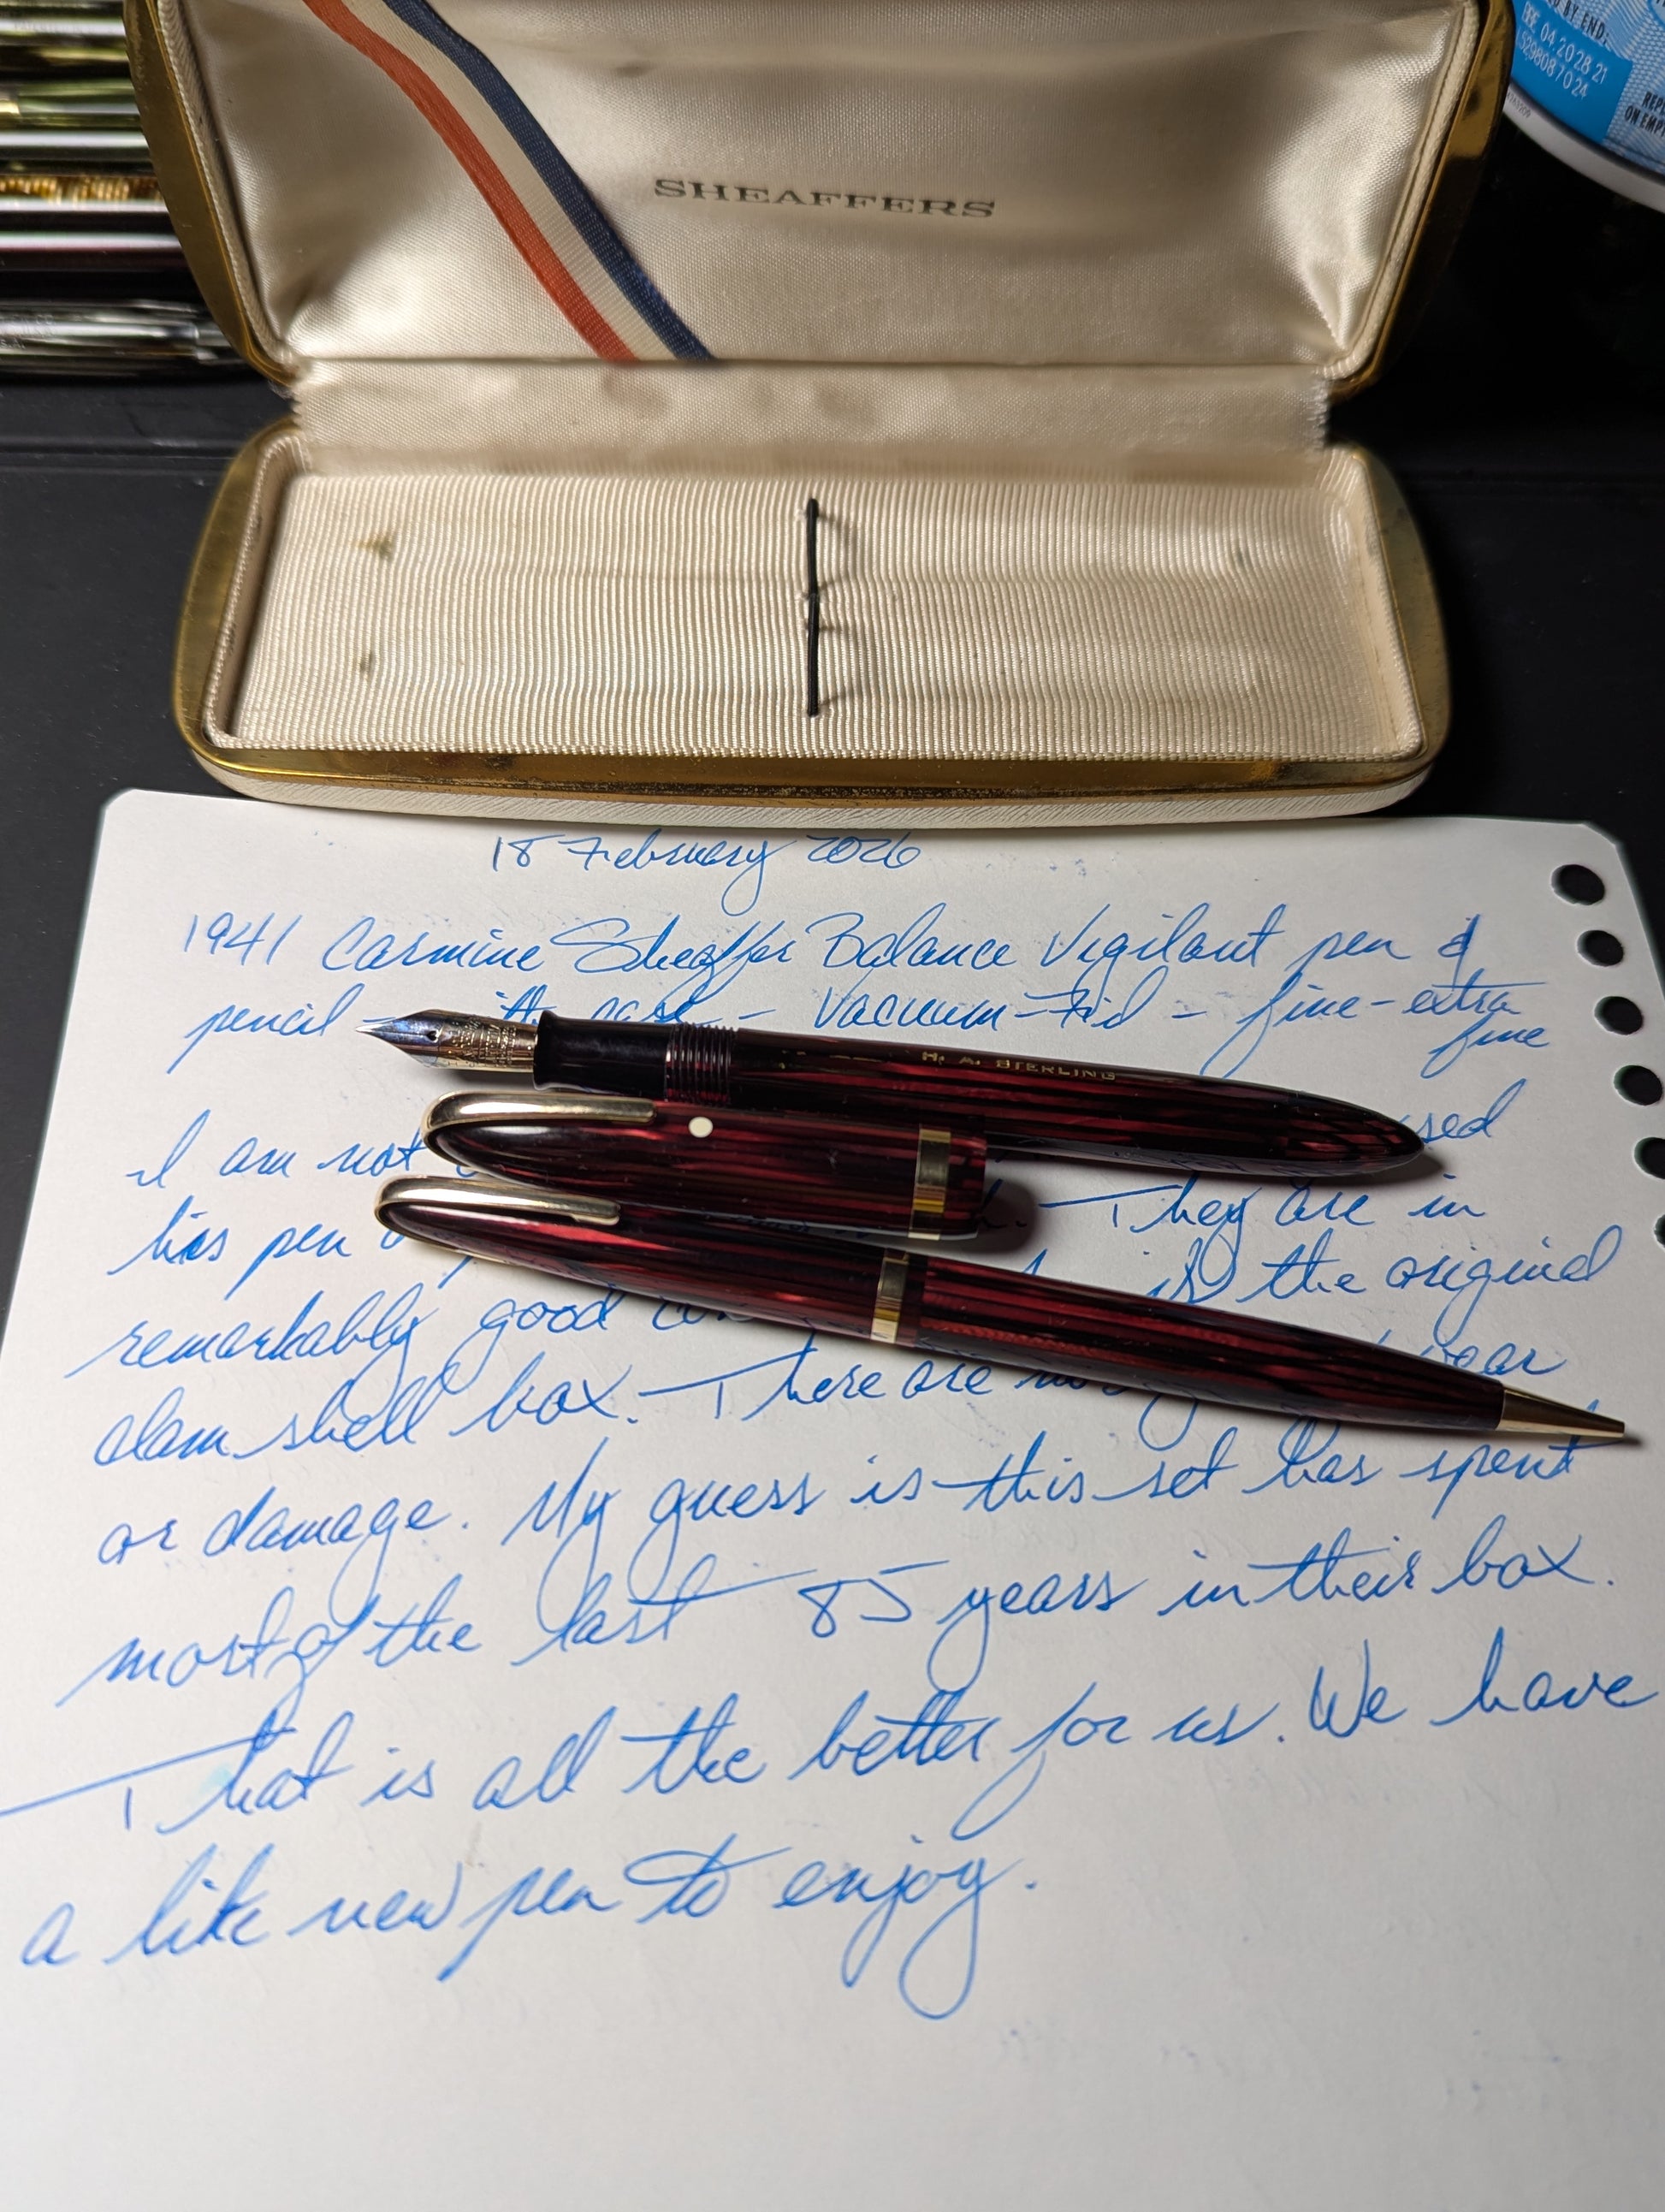 BY END:
04 20 28 21
5298087024
ON EMP
SHEAFFERS
18 February 2026
1941 Carmine Sheaffer Balance Vigilant pen &
pencil - case - Vacuum-Fil - fine-extra
fine
H. A. STERLING
I am not sed
his pen They are in
remarkably good is the original
clam shell box. There are wear
or damage. My guess is this set has spent
most of the last 85 years in their box.
That is all the better for us. We have
a like new pen to enjoy.